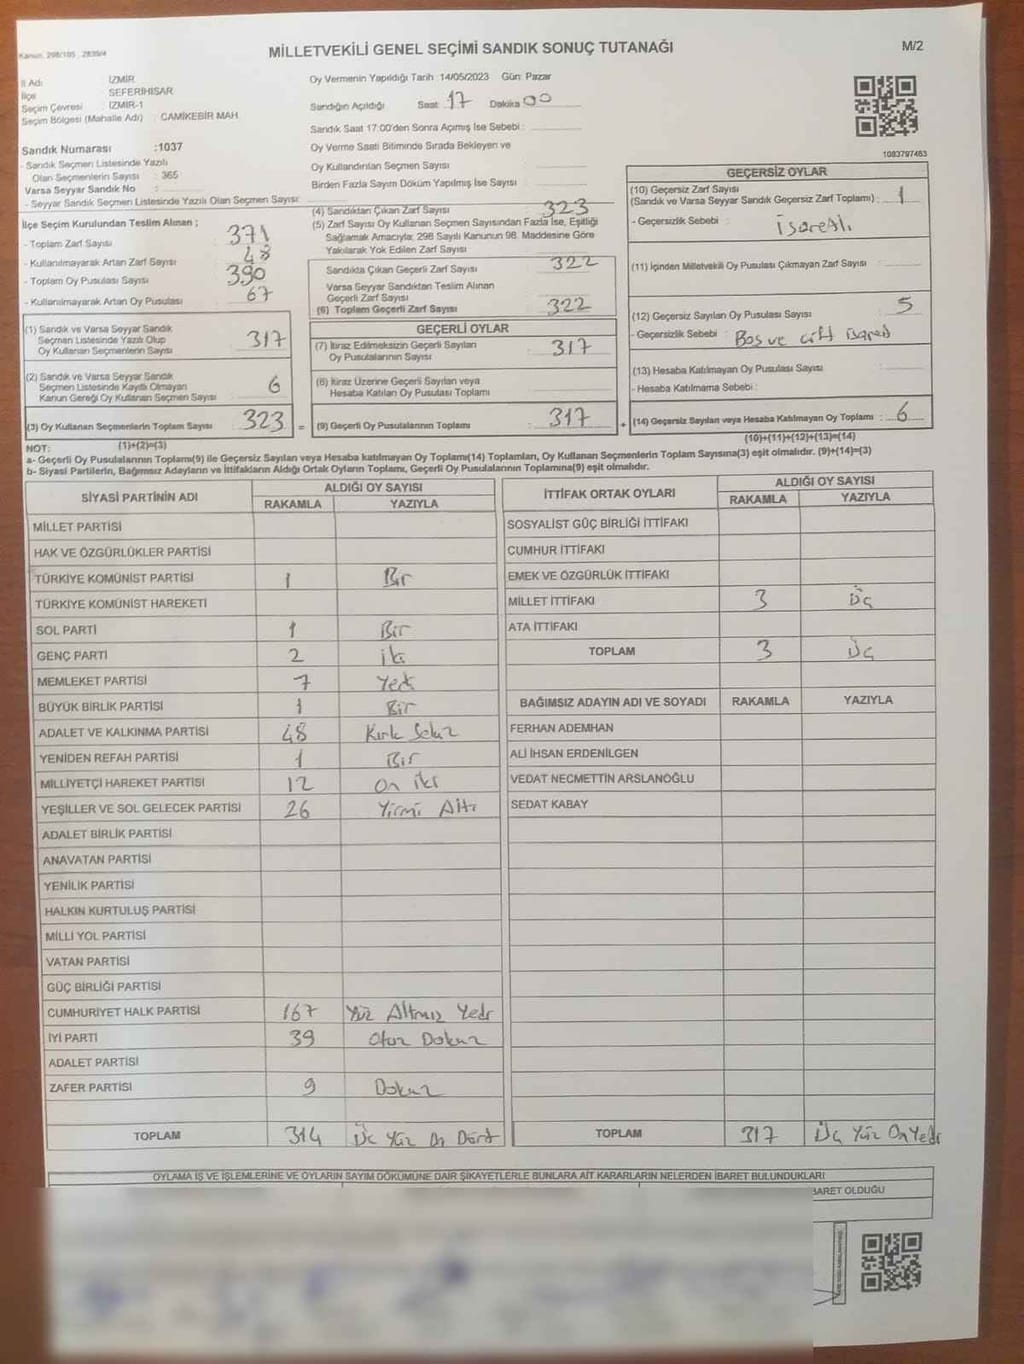 Kanun, 298/105 , 2839/4
MİLLETVEKİLİ GENEL SEÇİMİ SANDIK SONUÇ TUTANAĞI
M/2
İl Adı İZMİR
İlçe SEFERİHİSAR
Seçim Çevresi İZMİR-1
Seçim Bölgesi (Mahalle Adı) : CAMİKEBİR MAH
Oy Vermenin Yapıldığı Tarih :14/05/2023 Gün: Pazar
Sandığın Açıldığı Saat 17 Dakika 00
Sandık Saat 17:00'den Sonra Açımış İse Sebebi :
Sandık Numarası :1037
- Sandık Seçmen Listesinde Yazılı
Olan Seçmenlerin Sayısı : 365
Varsa Seyyar Sandık No :
- Seyyar Sandık Seçmen Listesinde Yazılı Olan Seçmen Sayısı:
Oy Verme Saati Bitiminde Sırada Bekleyen ve
Oy Kullandırılan Seçmen Sayısı :
Birden Fazla Sayım Döküm Yapılmış İse Sayısı :
1083797463
İlçe Seçim Kurulundan Teslim Alınan ;
- Toplam Zarf Sayısı 371
- Kullanılmayarak Artan Zarf Sayısı : 48
- Toplam Oy Pusulası Sayısı : 390
- Kullanılmayarak Artan Oy Pusulası : 67
(1) Sandık ve Varsa Seyyar Sandık
Seçmen Listesinde Yazılı Olup
Oy Kullanan Seçmenlerin Sayısı : 317
(2) Sandık ve Varsa Seyyar Sandık
Seçmen Listesinde Kayıtlı Olmayan
Kanun Gereği Oy Kullanan Seçmen Sayısı : 6
(3) Oy Kullanan Seçmenlerin Toplam Sayısı : 323 =
(1)+(2)=(3)
(4) Sandıktan Çıkan Zarf Sayısı : 323
(5) Zarf Sayısı Oy Kullanan Seçmen Sayısından Fazla İse, Eşitliği
Sağlamak Amacıyla; 298 Sayılı Kanunun 98. Maddesine Göre
Yakılarak Yok Edilen Zarf Sayısı :
Sandıkta Çıkan Geçerli Zarf Sayısı : 322
Varsa Seyyar Sandıktan Teslim Alınan
Geçerli Zarf Sayısı :
(6) Toplam Geçerli Zarf Sayısı : 322
GEÇERLİ OYLAR
(7) İtiraz Edilmeksizin Geçerli Sayılan
Oy Pusulalarının Sayısı : 317
(8) İtiraz Üzerine Geçerli Sayılan veya
Hesaba Katılan Oy Pusulası Toplamı :
(9) Geçerli Oy Pusulalarının Toplamı : 317 +
GEÇERSİZ OYLAR
(10) Geçersiz Zarf Sayısı
(Sandık ve Varsa Seyyar Sandık Geçersiz Zarf Toplamı) : 1
- Geçersizlik Sebebi : işaretli
(11) İçinden Milletvekili Oy Pusulası Çıkmayan Zarf Sayısı :
(12) Geçersiz Sayılan Oy Pusulası Sayısı : 5
- Geçersizlik Sebebi : Boş ve çift işaret
(13) Hesaba Katılmayan Oy Pusulası Sayısı :
- Hesaba Katılmama Sebebi :
(14) Geçersiz Sayılan veya Hesaba Katılmayan Oy Toplamı : 6
(10)+(11)+(12)+(13)=(14)
NOT:
a- Geçerli Oy Pusulalarının Toplamı(9) ile Geçersiz Sayılan veya Hesaba katılmayan Oy Toplamı(14) Toplamları, Oy Kullanan Seçmenlerin Toplam Sayısına(3) eşit olmalıdır. (9)+(14)=(3)
b- Siyasi Partilerin, Bağımsız Adayların ve İttifakların Aldığı Ortak Oyların Toplamı, Geçerli Oy Pusulalarının Toplamına(9) eşit olmalıdır.
SİYASİ PARTİNİN ADI ALDIĞI OY SAYISI
RAKAMLA YAZIYLA
MİLLET PARTİSİ
HAK VE ÖZGÜRLÜKLER PARTİSİ
TÜRKİYE KOMÜNİST PARTİSİ 1 Bir
TÜRKİYE KOMÜNİST HAREKETİ
SOL PARTİ 1 Bir
GENÇ PARTİ 2 iki
MEMLEKET PARTİSİ 7 Yedi
BÜYÜK BİRLİK PARTİSİ 1 Bir
ADALET VE KALKINMA PARTİSİ 48 Kırk Sekiz
YENİDEN REFAH PARTİSİ 1 Bir
MİLLİYETÇİ HAREKET PARTİSİ 12 on iki
YEŞİLLER VE SOL GELECEK PARTİSİ 26 Yirmi Altı
ADALET BİRLİK PARTİSİ
ANAVATAN PARTİSİ
YENİLİK PARTİSİ
HALKIN KURTULUŞ PARTİSİ
MİLLİ YOL PARTİSİ
VATAN PARTİSİ
GÜÇ BİRLİĞİ PARTİSİ
CUMHURİYET HALK PARTİSİ 167 Yüz Altmış Yedi
İYİ PARTİ 39 Otuz Dokuz
ADALET PARTİSİ
ZAFER PARTİSİ 9 Dokuz
TOPLAM 314 Üç Yüz On Dört
İTTİFAK ORTAK OYLARI ALDIĞI OY SAYISI
RAKAMLA YAZIYLA
SOSYALİST GÜÇ BİRLİĞİ İTTİFAKI
CUMHUR İTTİFAKI
EMEK VE ÖZGÜRLÜK İTTİFAKI
MİLLET İTTİFAKI 3 Üç
ATA İTTİFAKI
TOPLAM 3 Üç
BAĞIMSIZ ADAYIN ADI VE SOYADI RAKAMLA YAZIYLA
FERHAN ADEMHAN
ALİ İHSAN ERDENİLGEN
VEDAT NECMETTİN ARSLANOĞLU
SEDAT KABAY
TOPLAM 317 Üç Yüz On Yedi
OYLAMA İŞ VE İŞLEMLERİNE VE OYLARIN SAYIM DÖKÜMÜNE DAİR ŞİKAYETLERLE BUNLARA AİT KARARLARIN NELERDEN İBARET BULUNDUKLARI
BARET OLDUĞU